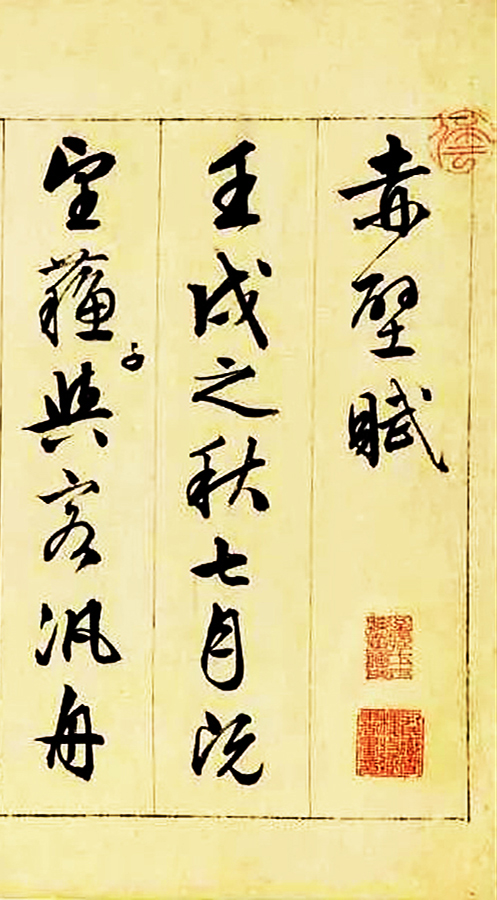 赤壁賦
壬戌之秋七月既
望蘓子與客汎舟